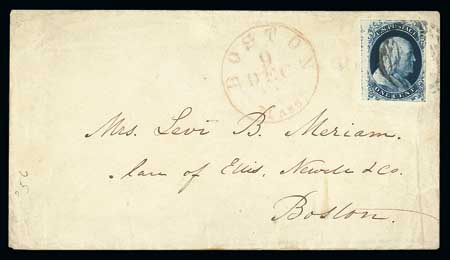 BOSTON
9
DEC
MASS
U.S. POSTAGE
ONE CENT
Mrs. Levi B. Meriam.
Care of Ellis, Newell & Co.
Boston.